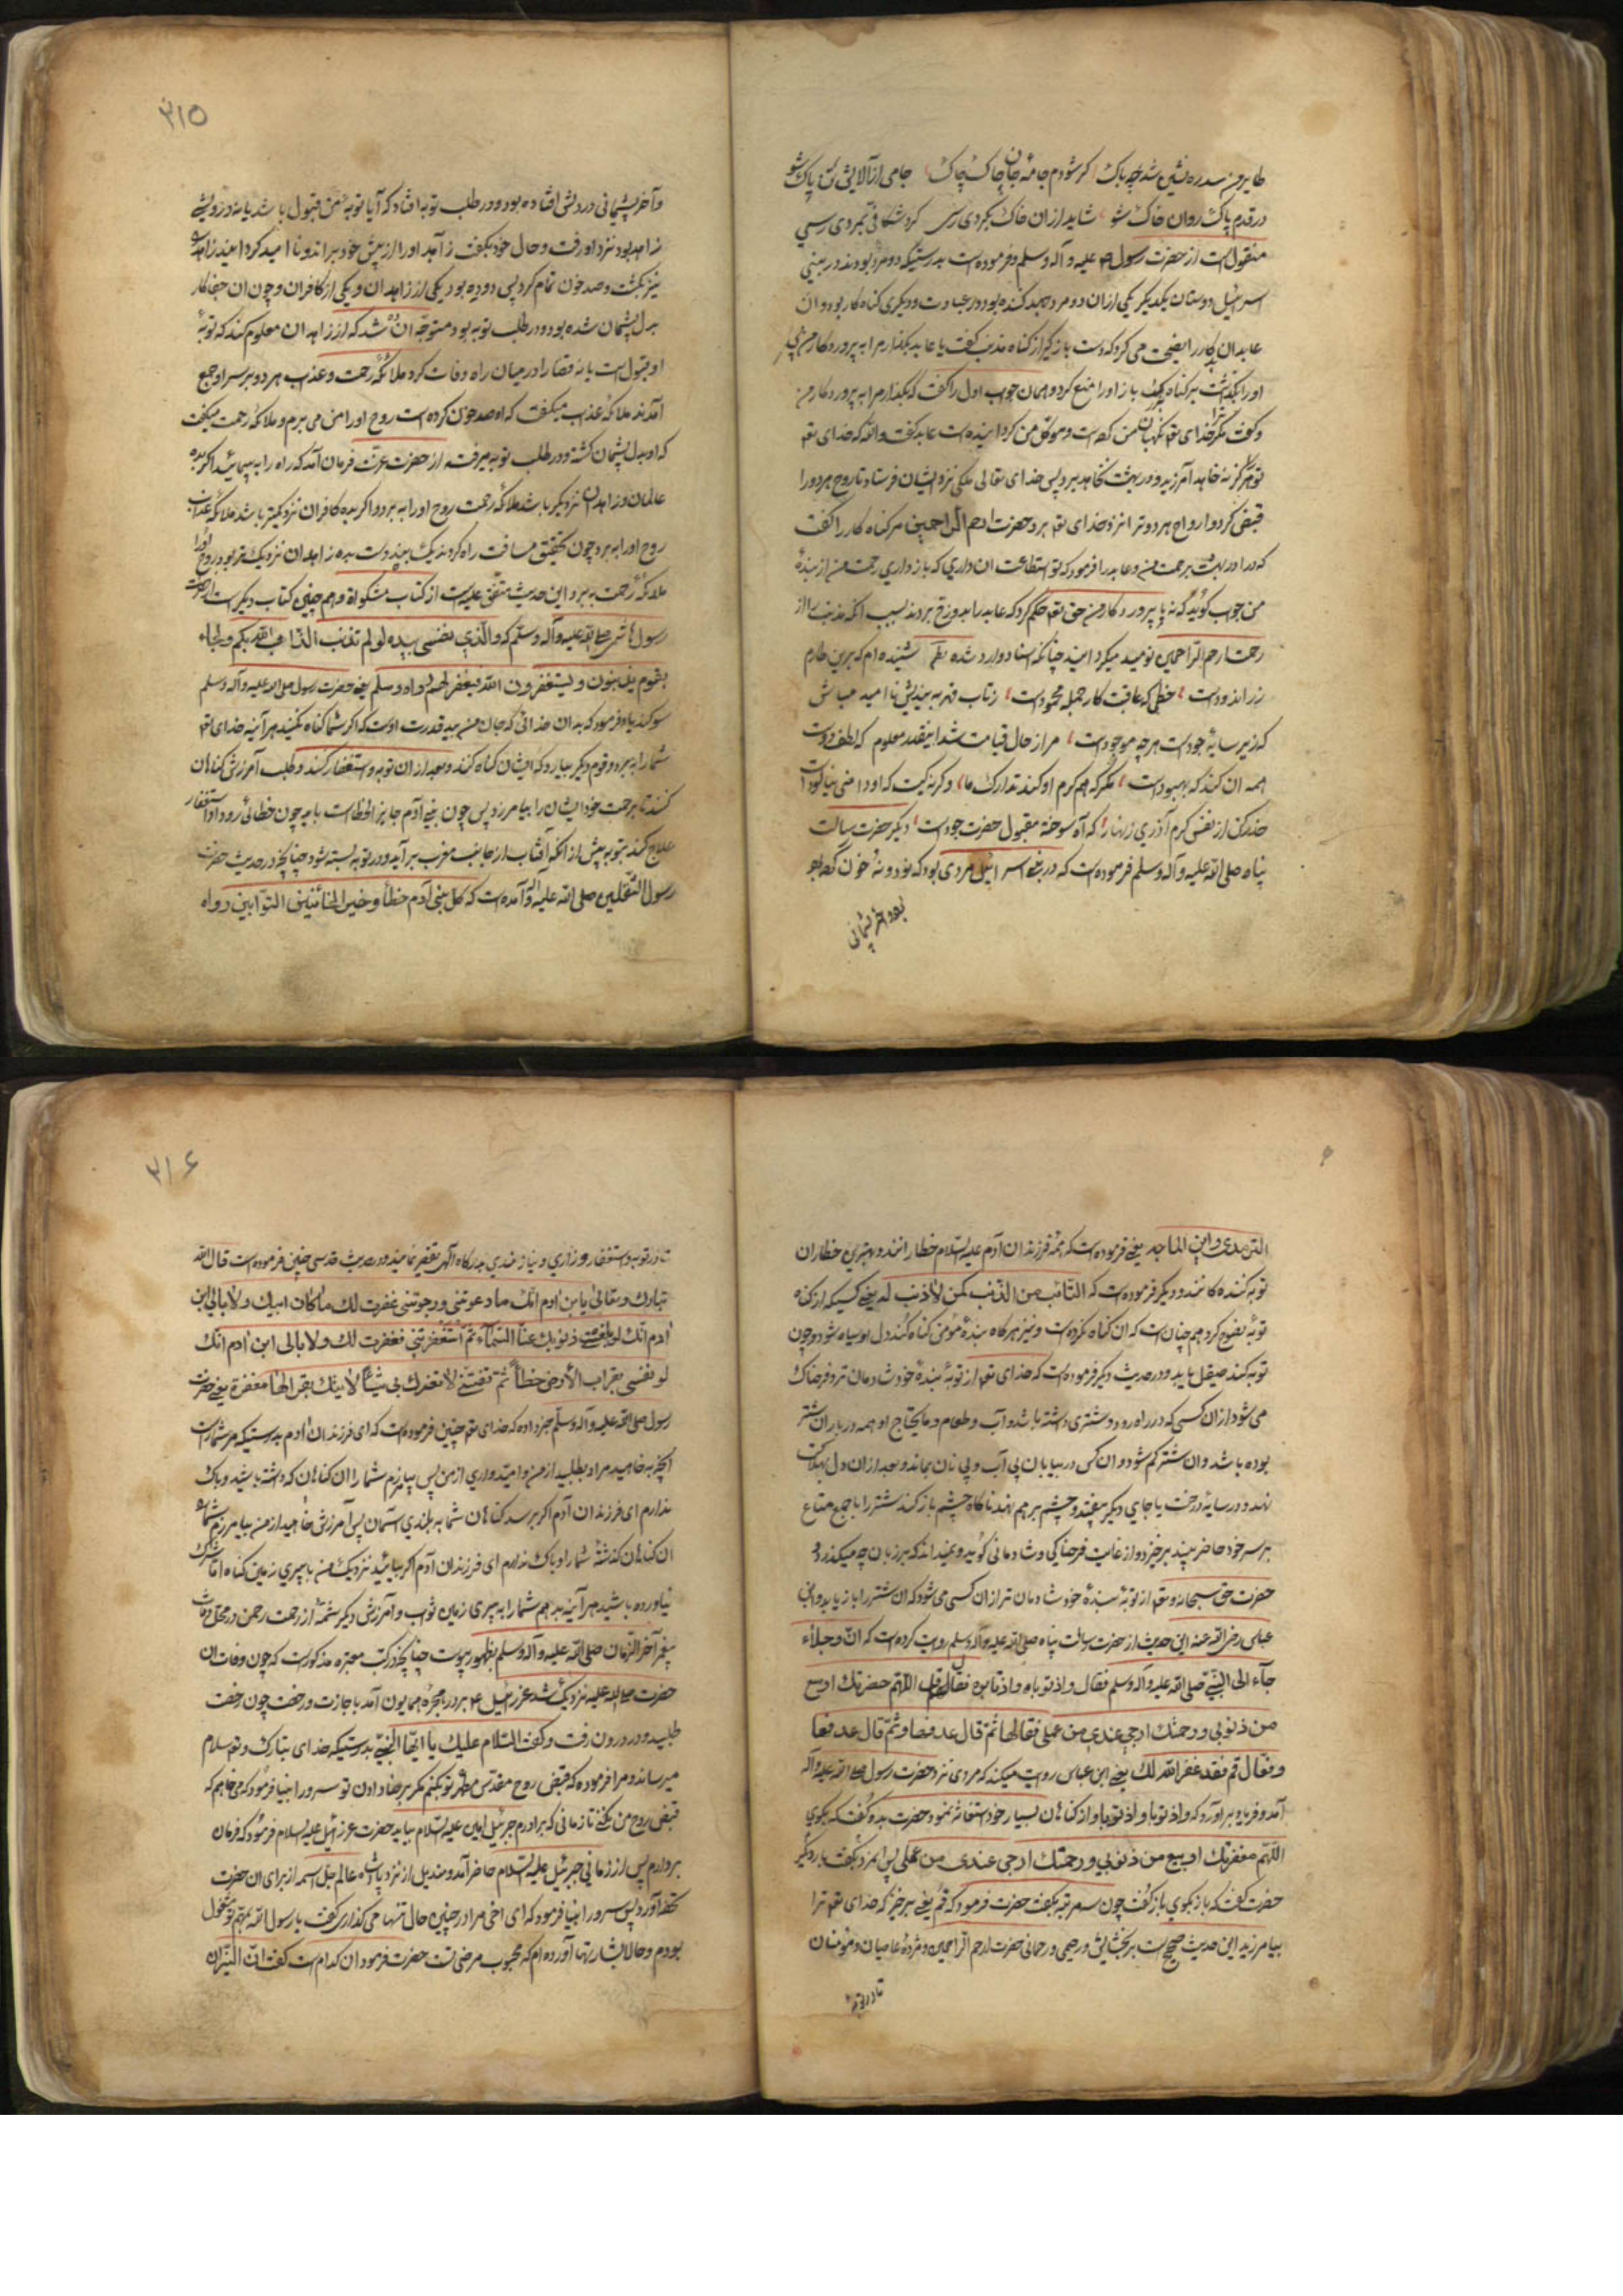 طایر من سدره نشین شد چه باک کر شودم جامهٔ جان چاک چاک جامی از آلایش تن پاک شو
در قدم پاک روان خاک شو شاید از ان خاک بکردی رسی کرد شکافی بمردی رسی
منقول است از حضرت رسول علیه و آله وسلم و فرموده است بدرستیکه دو مرد بودند در بنی
اسرائیل دوستان یکدیکر یکی از ان دو مرد جهد کننده بود در عبادت و دیکری کناه کار بود و ان
عابد ان را نصیحت می کرد که دست باز کیر از کناه مذنب کفت یا عابد بکذار مرا به پروردکار من
اورا بکذاشت بر کناه باز اورا منع کرد و همان جواب اول را کفت که بکذار مرا به پروردکار من
و کفت مکر ترا خدای تعا نکهبان من کرده است و موکل من کردانیده است عابد کفت والله که خدای تعا
ترا هرکز نه خاهد آمرزید و در بهشت نخاهد برد پس خدای تعالی ملکی نزد ایشان فرستاد تا روح هر دو را
قبض کرد و ارواح هر دو ترا نزد خدای تعا برد حضرت ارحم الراحمین مر کناه کار را کفت
که درا در بهشت برحمت من و عابد را فرمود که تو استطاعت ان داری که باز داری رحمت من از بندهٔ
من جواب کوید که نه یا پروردکار من حق تعا حکم کرد که عابد را بدوزخ بردند بسبب انکه مذنب را از
رحمت ارحم الراحمین نومید میکردانید چنانکه اسناد وارد شده نظم شنیده ام که برین طارم
زر اندود است خطی که عاقبت کار جمله محمود است ز تاب قهر به بندیش نا امید مباش
که زیر سایهٔ جود است هر چه موجود است مر از حال قیامت شد اینقدر معلوم که لطف دوست
همه ان کند که بهبود است مکر که هم کرم او کند تدارک ما وکرنه کیست که او دامنی نیالود است
حذر کن از نفس کرم آذری زنهار که آه سوخته مقبول حضرت جود است دیکر حضرت رسالت
پناه صلی الله علیه و آله وسلم فرموده است که در بنی اسرائیل مردی بود که نود و نه خون کرده
بود و اخر پشیمانی
۳۱۵
و آخر پشیمانی در دلش افتاده بود و در طلب توبه افتاد که آیا توبه من قبول باشد یا نه در پیش
زاهد بود نزد او رفت و حال خود بکفت زاهد اورا از پیش خود براند و نا امید کردانید زاهد را
نیز بکشت و صد خون تمام کرد پس دو ده بود یکی از زاهدان و یکی از کافران و چون ان جفا کار
بدل پشیمان شده بود و در طلب توبه بود متوجه ان ده شد که از زاهدان معلوم کند که توبهٔ
او قبول است یا نه قضا را در میان راه وفات کرد ملائکه رحمت و عذاب هر دو بر سر او جمع
آمدند ملائکه عذاب میکفت که او صد خون کرده است روح اورا من می برم و ملائکه رحمت میکفت
که او بدل پشیمان کشته و در طلب توبه میرفت از حضرت عزت فرمان آمد که راه را به پیمائید اکر بده
عالمان و زاهدان نزدیکتر باشد ملائکه رحمت روح اورا به برد و اکر بده کافران نزدیکتر باشد ملائکه عذاب
روح اورا به برد چون تحقیق مسافت راه کردند یک بدست بده زاهدان نزدیک تر بود روح اورا
ملائکه رحمت به برد و این حدیث متفق علیه است از کتاب مشکواة و هم چنین کتاب دیکرست از حضرت
رسول علیه و آله وسلم که والذی نفسی بیده لو لم تذنب الذهب الله بکم ولجاء
بقوم یذنبون ویستغفرون الله فیغفر لهم یعنی حضرت رسول صلی الله علیه و آله وسلم
سوکند یاد فرمود که بدان خدائی که جان من بید قدرت اوست که اکر شما کناه نکنید هر آینه خدای تعا
شما را به برد و قوم دیکر بیارد که ایشان کناه کنند و بعد از ان توبه و استغفار کنند و طلب آمرزش کناهان
کنند تا برحمت خود ایشان را بیامرزد پس چون بنی آدم جایز الخطا است باید چون خطائی رود او را استغفار
علاج کند بتوبه پیش از انکه آفتاب از جانب مغرب بر آید و در توبه بسته شود چنانچه در حدیث حضرت
رسول الثقلین صلی الله علیه و آله آمده است که کل بنی آدم خطأ وخیر الخائنین التوابین رواه
الترمذی وابن الماجه یعنی فرموده است که همه فرزندان آدم علیه السلام خطاراننند و بهترین خطاران
توبه کننده کانند و دیکر فرموده است که التائب من الذنب کمن لاذنب له یعنی کسیکه از کناه
توبهٔ نصوح کرد هم چنان است که ان کناه نکرده است و نیز هر کاه بندهٔ مؤمن کناه کند دل او سیاه شود و چون
توبه کند صیقل یابد و در حدیث دیکر فرموده است که خدای تعا از توبهٔ بندهٔ خود شادمان تر و فرحناک
می شود از ان کسی که در راه رود و شتری داشته باشد و آب و طعام و مایحتاج او همه در بار ان شتر
بوده باشد و ان شتر کم شود و ان کس در بیابان بی آب و بی نان بماند و بعد از ان دل بهلاکت
نهد و در سایهٔ درخت یا جای دیکر بیفتد و چشم بر هم نهد ناکاه چشم باز کند شتر را با جمیع متاع
بر سر خود حاضر بیند بر خیزد و از غایت فرحناکی و شادمانی کوید و نمیداند که بر زبان چه میکذرد
حضرت حق سبحانه و تعا از توبهٔ بندهٔ خود شادمان تر از ان کس می شود که ان شتر را باز یابد و ابن
عباس رضی الله عنه این حدیث از حضرت رسالت پناه صلی الله علیه و آله وسلم روایت کرده است که ان رجلا
جآء الی النبی صلی الله علیه و آله وسلم فقال واذنوباه واذنوباه فقال قل اللهم مغفرتک اوسع
من ذنوبی ورحمتک ارجی عندی من عملی فقالها ثم قال عد فعاد ثم قال عد فعاد
وفقال قم فقد غفر الله لک یعنی ابن عباس روایت میکند که مردی نزد حضرت رسول صلی الله علیه و آله
آمد و فریاد بر اورد که واذنوبا واذنوبا و از کناهان بسیار خود استغاثه نمود حضرت بدو کفت که بکوی
اللهم مغفرتک اوسع من ذنوبی ورحمتک ارجی عندی من عملی پس امرد بکفت بار دیکر
حضرت کفت که باز بکوی باز کفت چون سه مرتبه بکفت حضرت فرمود که قم یعنی برخیز که خدای تعا ترا
بیامرزید این حدیث صحیح است بر بخشایش و رحیمی و رحمانی حضرت ارحم الراحمین و مژدهٔ عاصیان و مؤمنان
تا در توبه
۳۱۶
تا در توبه و استغفار و زاری و نیازمندی بدرکاه الهی تقصیر ننمایند و در حدیث قدسی چنین فرموده است قال الله
تبارک وتعالی یا بن ادم انک ما دعوتنی ورجوتنی غفرت لک ما کان فیک ولا ابالی ابن
ادم انک لو بلغت ذنوبک عنا السمآء ثم استغفرتنی فغفرت لک ولا بالی ابن ادم انک
لو بقراب الأرض خطأ ثم لا تشرک بی شیئا لا تیتک بقرابها مغفرة یعنی حضرت
رسول صلی الله علیه و آله وسلم خبر داده که خدای تعا چنین فرموده است که ای فرزندان ادم بدرستیکه مر شما راست
انچه بخاهید مراد بطلبید از من و امیدواری از من پس بیامرزم شما را ان کناهان که داشته باشید و باک
ندارم ای فرزندان آدم اکر برسد کناهان شما به بلندی آسمان پس آمرزش خاهید از من بیامرزم شما را
ان کناهان کذشتهٔ شما را و باک ندارم ای فرزندان آدم اکر بیائید نزدیک من با پری زمین کناه اما شرک
نیاورده باشید هر آینه بدهم شما را به پری زمین ثواب و آمرزش دیکر شمهٔ از رحمت رحمن در محل وفات
پیغمبر آخر الزمان صلی الله علیه و آله وسلم بظهور پیوست چنانچه در کتب معتبره مذکورست که چون وفات ان
حضرت صلی الله علیه نزدیک شد عزرائیل ع بر در حجره همایون آمد با جازت و رخصت چون رخصت
طلبید و در درون رفت و کفت السلام علیک یا ایها النبی بدرستیکه خدای تبارک و تعا سلام
میرساند و مرا فرموده که قبض روح مقدس مطهر تو بکنم مکر برضا دادن تو سرور انبیا فرمود که می خاهم که
قبض روح من نکنی تا زمانی که برادرم جبرئیل امین علیه السلام بیاید حضرت عزرائیل علیه السلام فرمود که فرمان
بردارم پس از زمانی جبرئیل علیه السلام حاضر آمد و مندیل از نزد پادشاه عالم جل اسمه از برای ان حضرت
تحفه آورد پس سرور انبیا فرمود که ای اخی مرا در چنین حال تنها می کذاری کفت یا رسول الله بمهم تو مشغول
بودم و حالا بشارتها آورده ام که محبوب مرضی تست حضرت فرمود ان کدام است کفت ان النیران